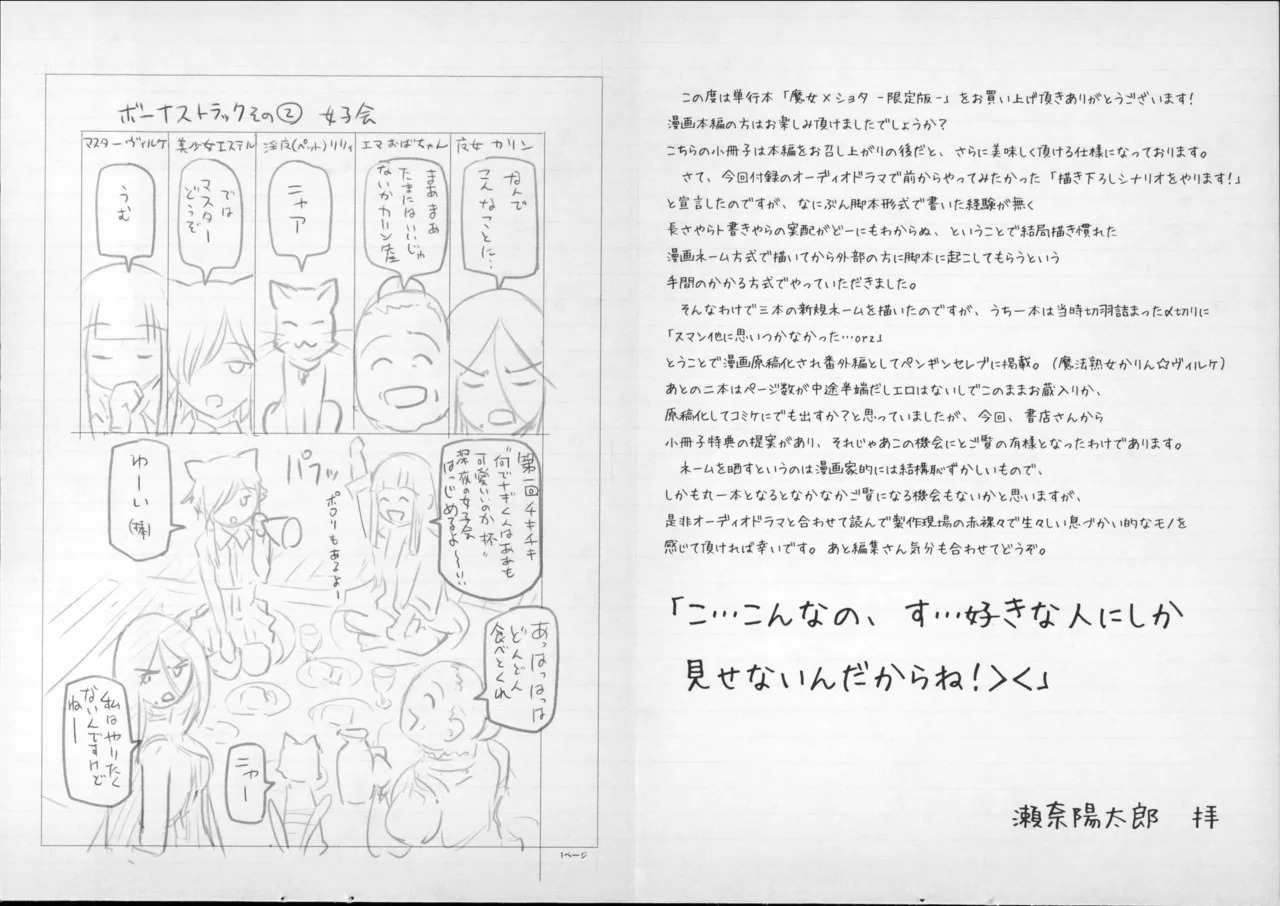 ボーナストラックその② 女子会
魔女 カリン
エマおばちゃん
淫魔(ペット)リリィ
美少女エステル
マスターヴィルケ
なんで
こんなことに…
まあまあ
たまにはいいじゃ
ないかカリン
ニャア
では
マスター
どうぞ
うむ
第一回チキチキ
"何でナギくんはああも
可愛いいのか杯"
深夜の女子会
はじめるよ〜!!
パフッ
ポロリもあるよー
わーい
(棒)
あっはっはっは
どんどん
食べとくれ
ニャー
私はやりたく
ないんですけど
ねー
1ページ
この度は単行本「魔女×ショタ -限定版-」をお買い上げ頂きありがとうございます!
漫画本編の方はお楽しみ頂けましたでしょうか?
こちらの小冊子は本編をお召し上がりの後だと、さらに美味しく頂ける仕様になっております。
さて、今回付録のオーディオドラマで前からやってみたかった「描き下ろしシナリオをやります!」
と宣言したのですが、なにぶん脚本形式で書いた経験が無く
長さやらト書きやらの案配がどーにもわからぬ、ということで結局描き慣れた
漫画ネーム方式で描いてから外部の方に脚本に起こしてもらうという
手間のかかる方式でやっていただきました。
そんなわけで三本の新規ネームを描いたのですが、うち一本は当時切羽詰まった〆切りに
「スマン他に思いつかなかった…orz」
とうことで漫画原稿化され番外編としてペンギンセレブに掲載。(魔法熟女かりん☆ヴィルケ)
あとの二本はページ数が中途半端だしエロはないしでこのままお蔵入りか、
原稿化してコミケにでも出すか?と思っていましたが、今回、書店さんから
小冊子特典の提案があり、それじゃあこの機会にとご覧の有様となったわけであります。
ネームを晒すというのは漫画家的には結構恥ずかしいもので、
しかも丸一本となるとなかなかご覧になる機会もないかと思いますが、
是非オーディオドラマと合わせて読んで製作現場の赤裸々で生々しい息づかい的なモノを
感じて頂ければ幸いです。あと編集さん気分も合わせてどうぞ。
「こ…こんなの、す…好きな人にしか
見せないんだからね!><」
瀬奈陽太郎 拝